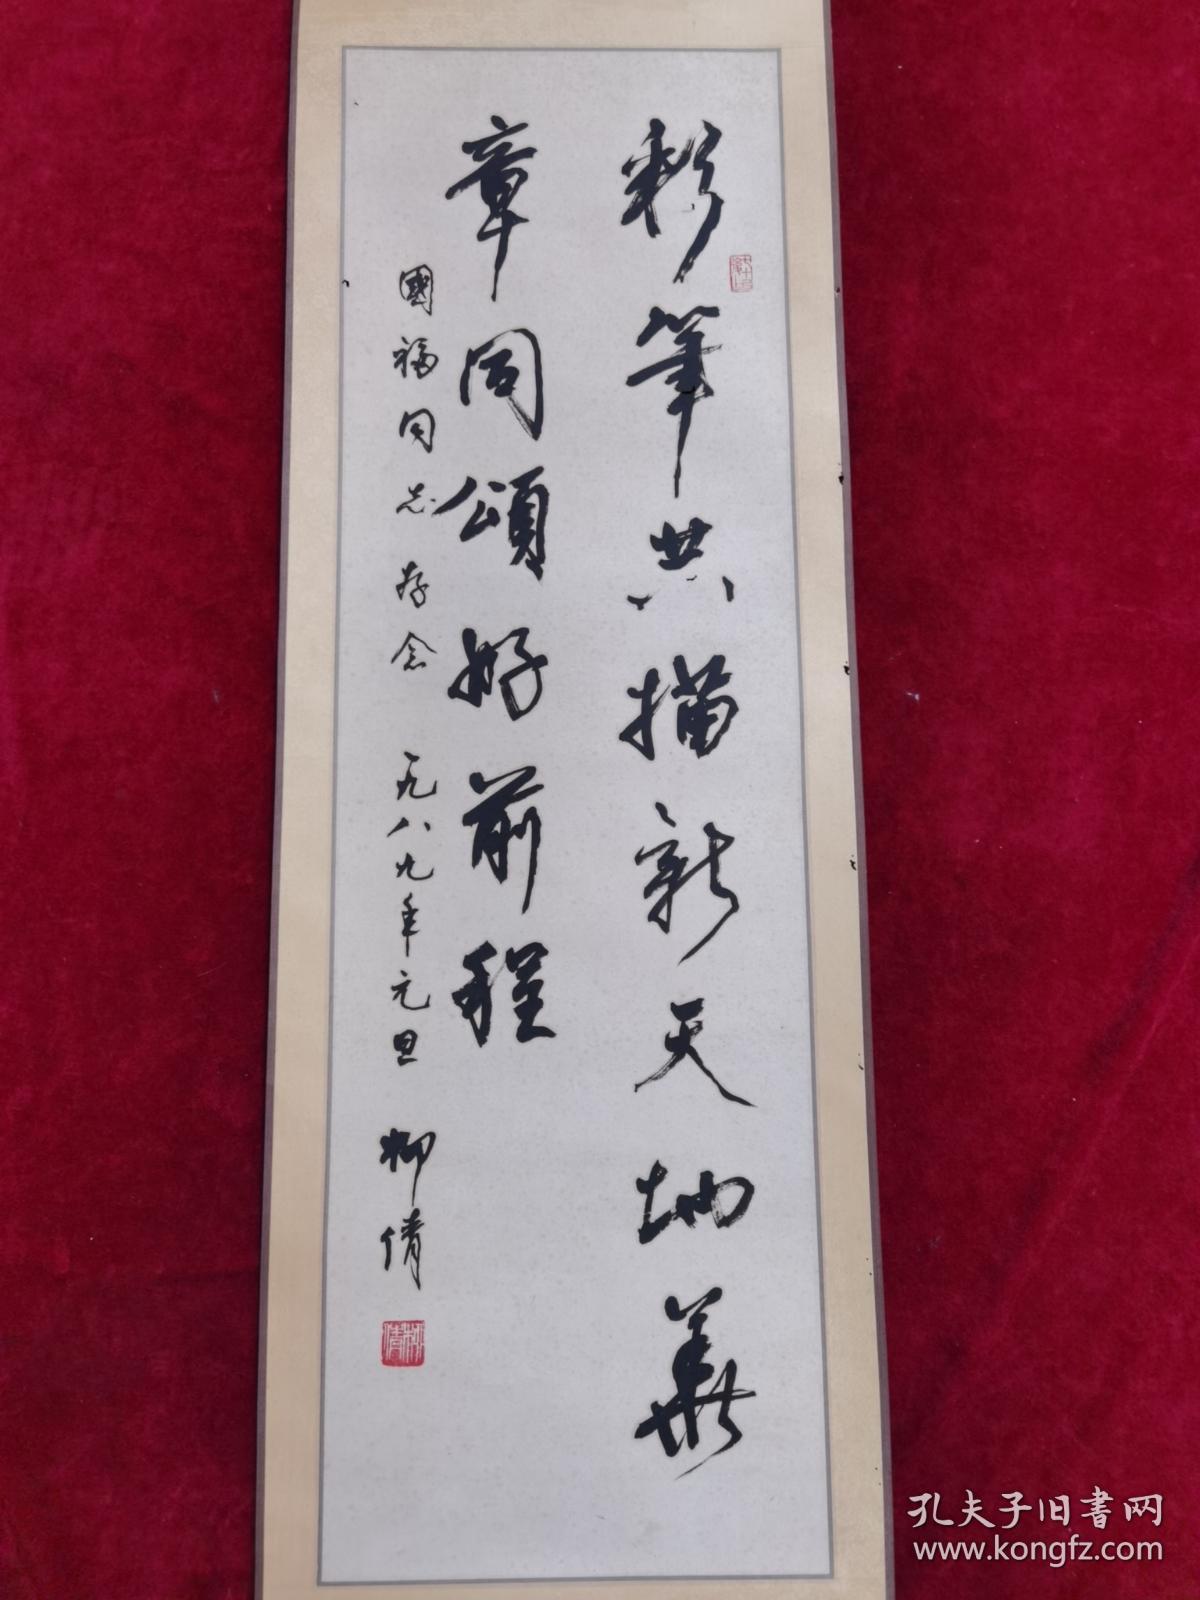 彩筆共描新天地華
章同頌好前程
國福同志存念 一九八九年元旦 柳倩
柳倩
孔夫子旧书网
www.kongfz.com